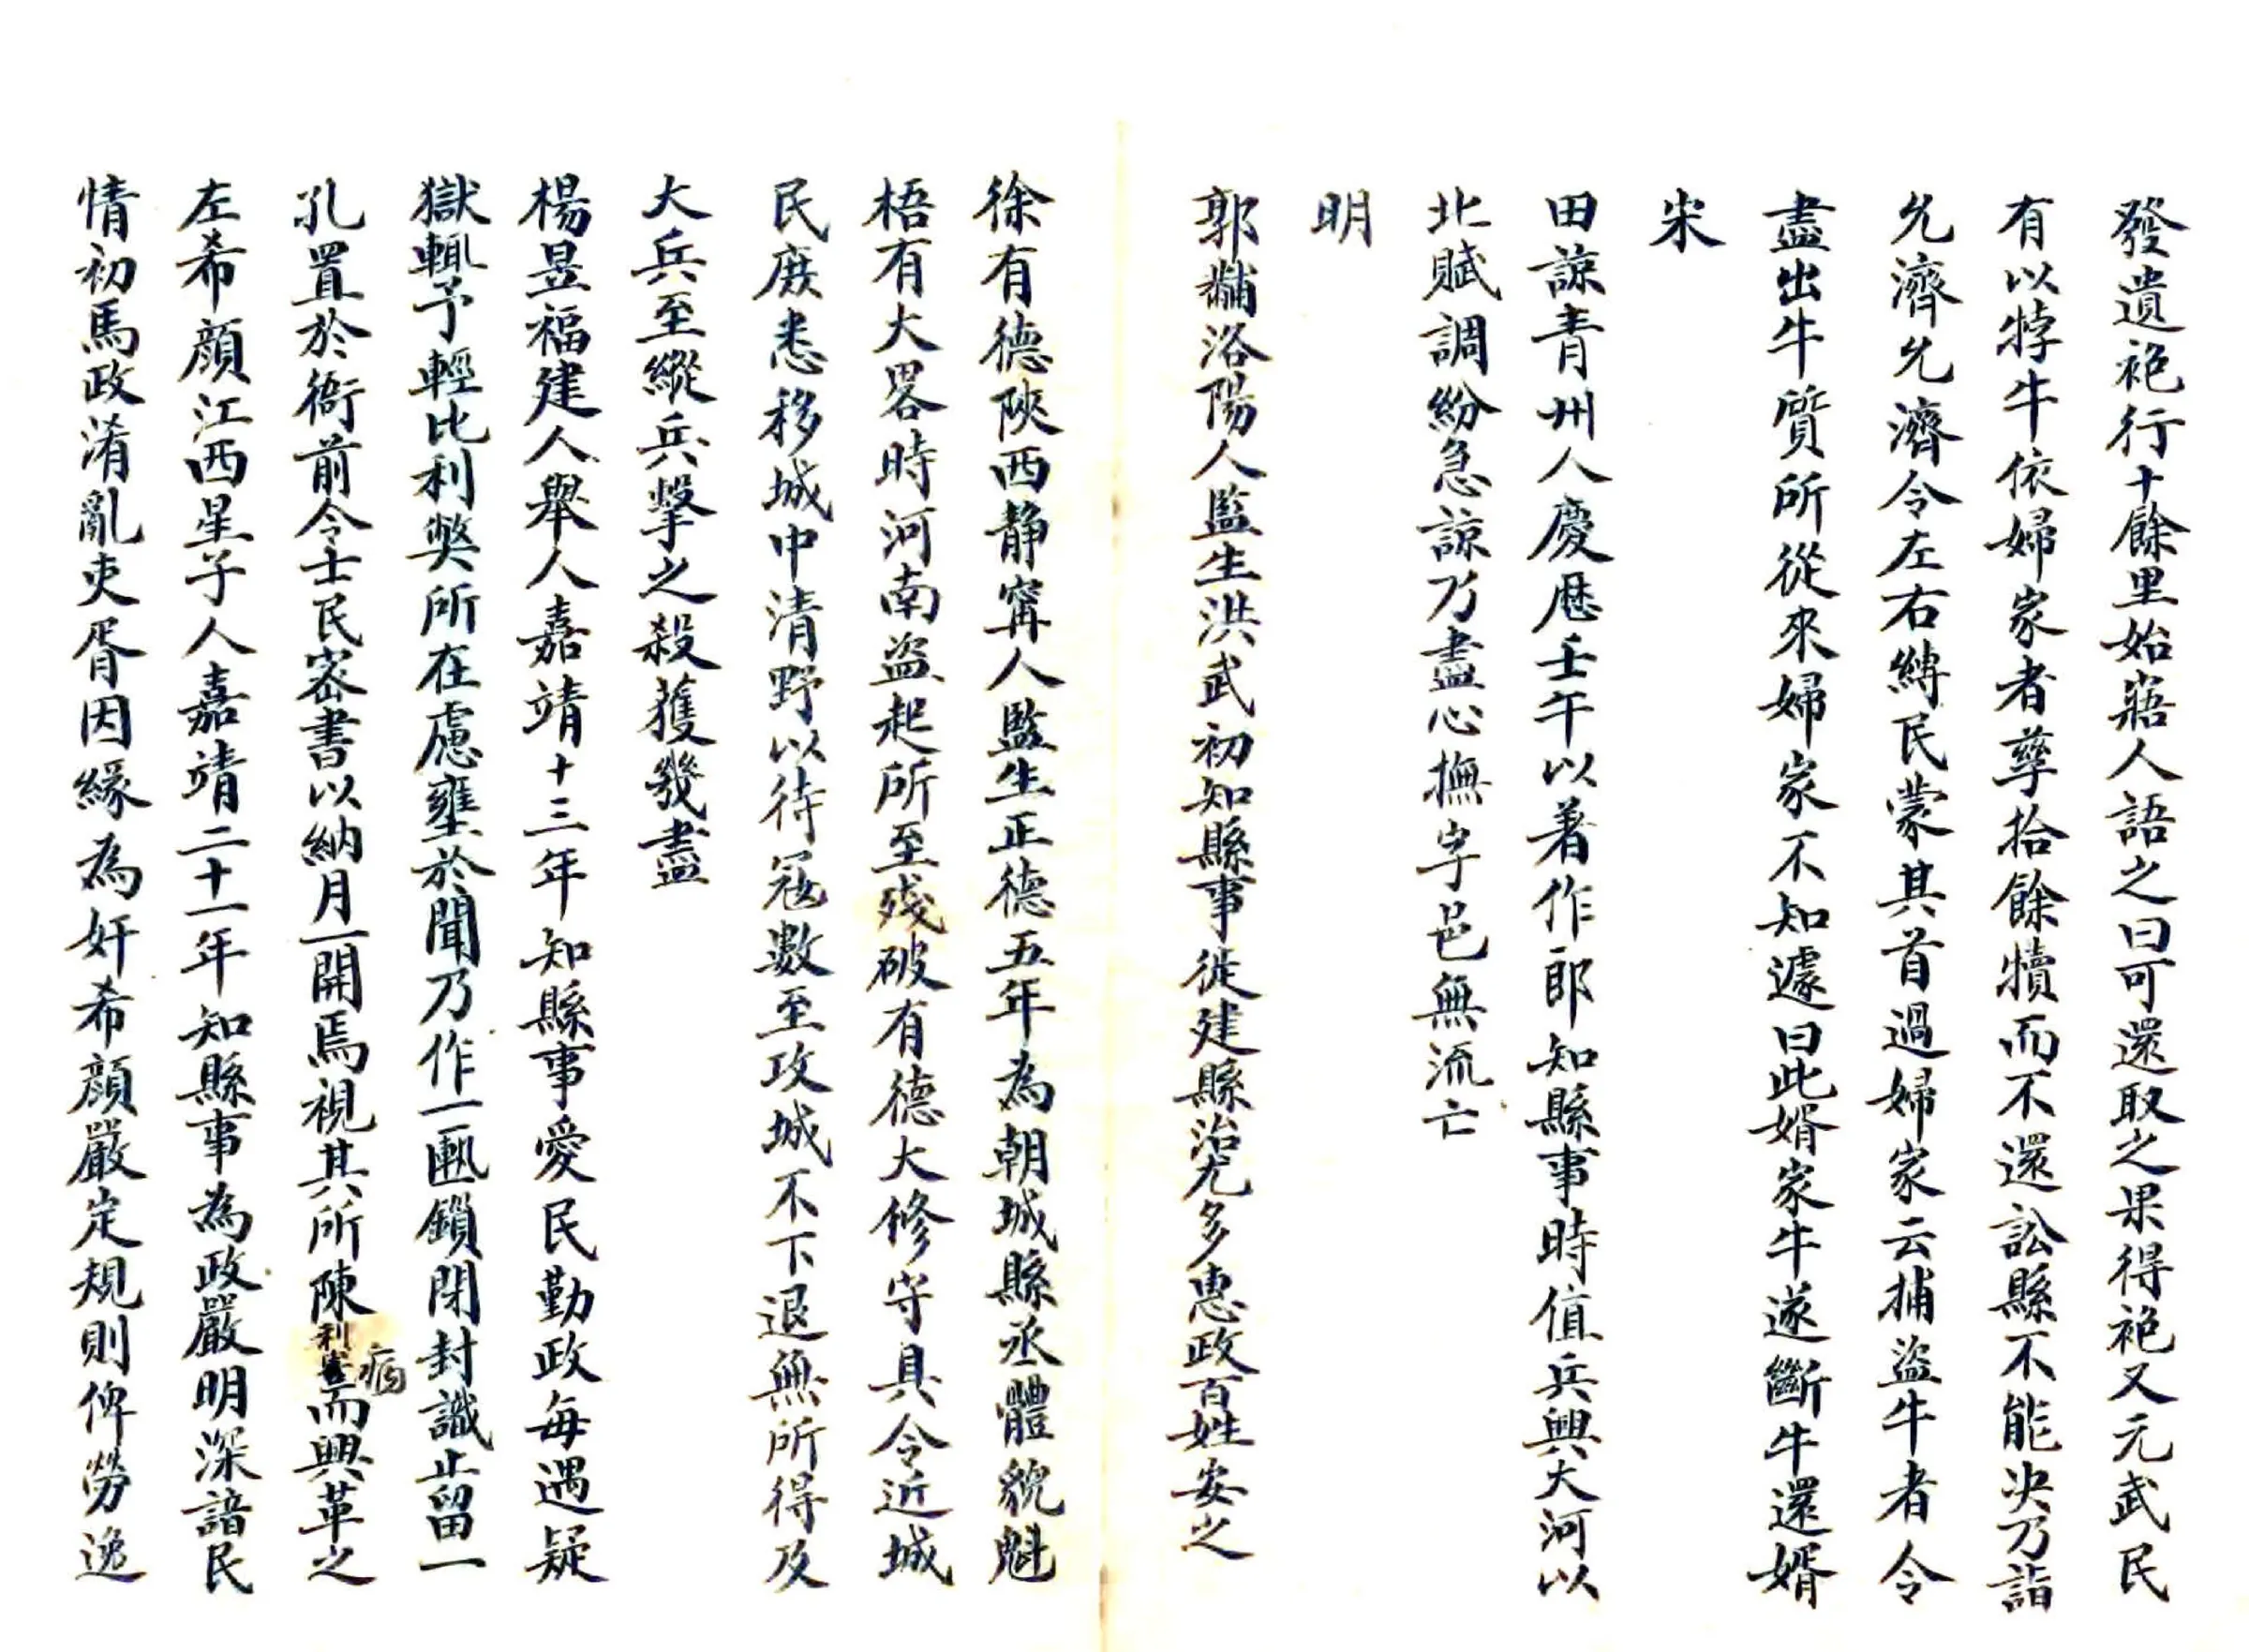 發遺袍行十餘里始寤人語之曰可還取之果得袍又元武民
有以牸牛依婦家者孳拾餘犢而不還訟縣不能决乃詣
允濟允濟令左右縛民蒙其首過婦家云捕盜牛者令
盡出牛質所從來婦家不知遽曰此婿家牛遂斷牛還婿
宋
田諒青州人慶厯壬午以著作郎知縣事時值兵興大河以
北賦調紛急諒乃盡心撫字邑無流亡
明
郭黼洛陽人監生洪武初知縣事徙建縣治尤多惠政百姓安之
徐有德陝西靜寗人監生正德五年為朝城縣丞體貌魁
梧有大畧時河南盜起所至殘破有德大修守具令近城
民庶悉移城中清野以待冦數至攻城不下退無所得及
大兵至縱兵擊之殺獲幾盡
楊昱福建人舉人嘉靖十三年知縣事愛民勤政每遇疑
獄輙予輕比利獘所在慮壅於聞乃作一匭鎖閉封識止留一
孔置於衙前令士民密書以納月一開焉視其所陳利害病而興革之
左希顏江西星子人嘉靖二十一年知縣事為政嚴明深諳民
情初馬政淆亂吏胥因緣為奸希顏嚴定規則俾勞逸